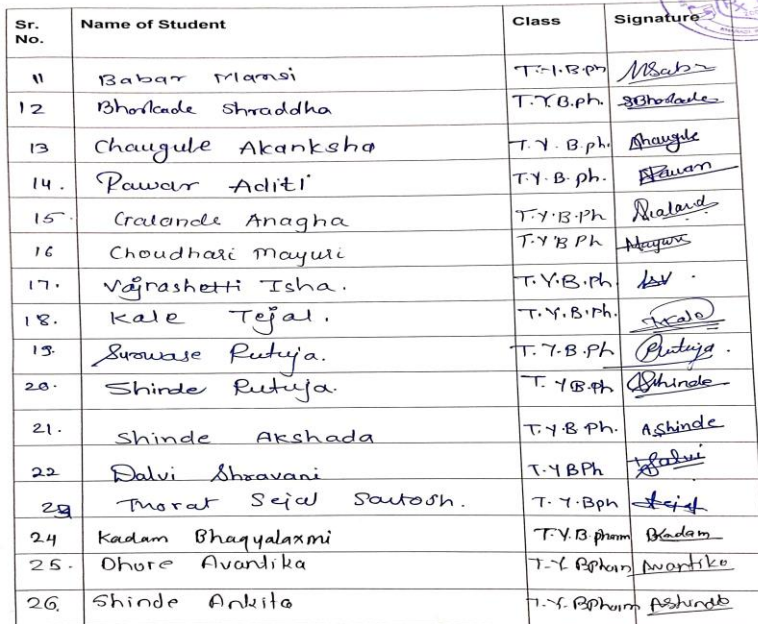 Sr. No. Name of Student Class Signature
11 Babar Mansi T.Y.B.ph
12 Bhorkade Shraddha T.Y.B.ph. SBhorkade
13 Chaugule Akanksha T.Y.B.ph. Ahaugule
14. Pawar Aditi T.Y.B.ph. APawar
15. Galande Anagha T.Y.B.Ph
16 Choudhari Mayuri T.Y B Ph Mayuri
17. Vajrashetti Isha. T.Y.B.Ph.
18. Kale Tejal. T.Y.B.Ph. TKale
19. Surwase Rutuja. T.Y.B.Ph Rutuja.
20. Shinde Rutuja. T.YB.Ph Shinde
21. Shinde Akshada T.Y.B Ph. A.Shinde
22 Dalvi Shravani T.YBPh Dalvi
23 Thorat Sejal Santosh. T.Y.Bph Sejal
24 Kadam Bhagyalaxmi T.Y.B pharm BKadam
25. Dhore Avantika T.Y. BPharm Avantika
26. Shinde Ankita T.Y. BPharm AShinde